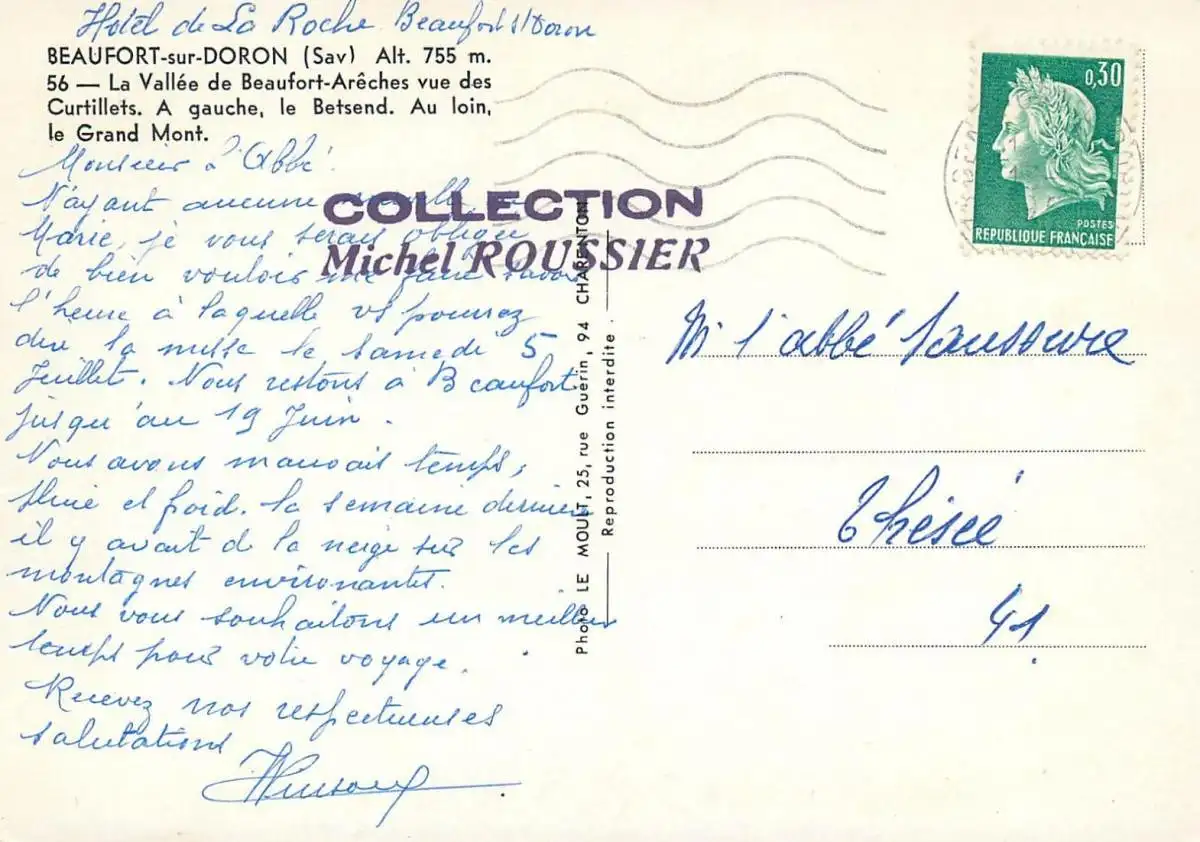 Hotel de La Roche Beaufort s/Doron
BEAUFORT-sur-DORON (Sav) Alt. 755 m.
56 — La Vallée de Beaufort-Arêches vue des
Curtillets. A gauche, le Betsend. Au loin,
le Grand Mont.
Monsieur l'Abbé
N'ayant aucune
Marie, je vous serais obligée
de bien vouloir me faire savoir
l'heure à laquelle vs pourrez
dire la messe le samedi 5
Juillet. Nous restons à Beaufort
jusqu'au 19 Juin.
Nous avons mauvais temps,
pluie et froid. la semaine dernière
il y avait de la neige sur les
montagnes environantes.
Nous vous souhaitons un meilleur
temps pour votre voyage.
Recevez nos respectueuses
salutations
COLLECTION
Michel ROUSSIER
Photo LE MOULT, 25, rue Guérin, 94 CHARENTON
Reproduction interdite
0,30
POSTES
REPUBLIQUE FRANÇAISE
M l'abbé
Thésée
41